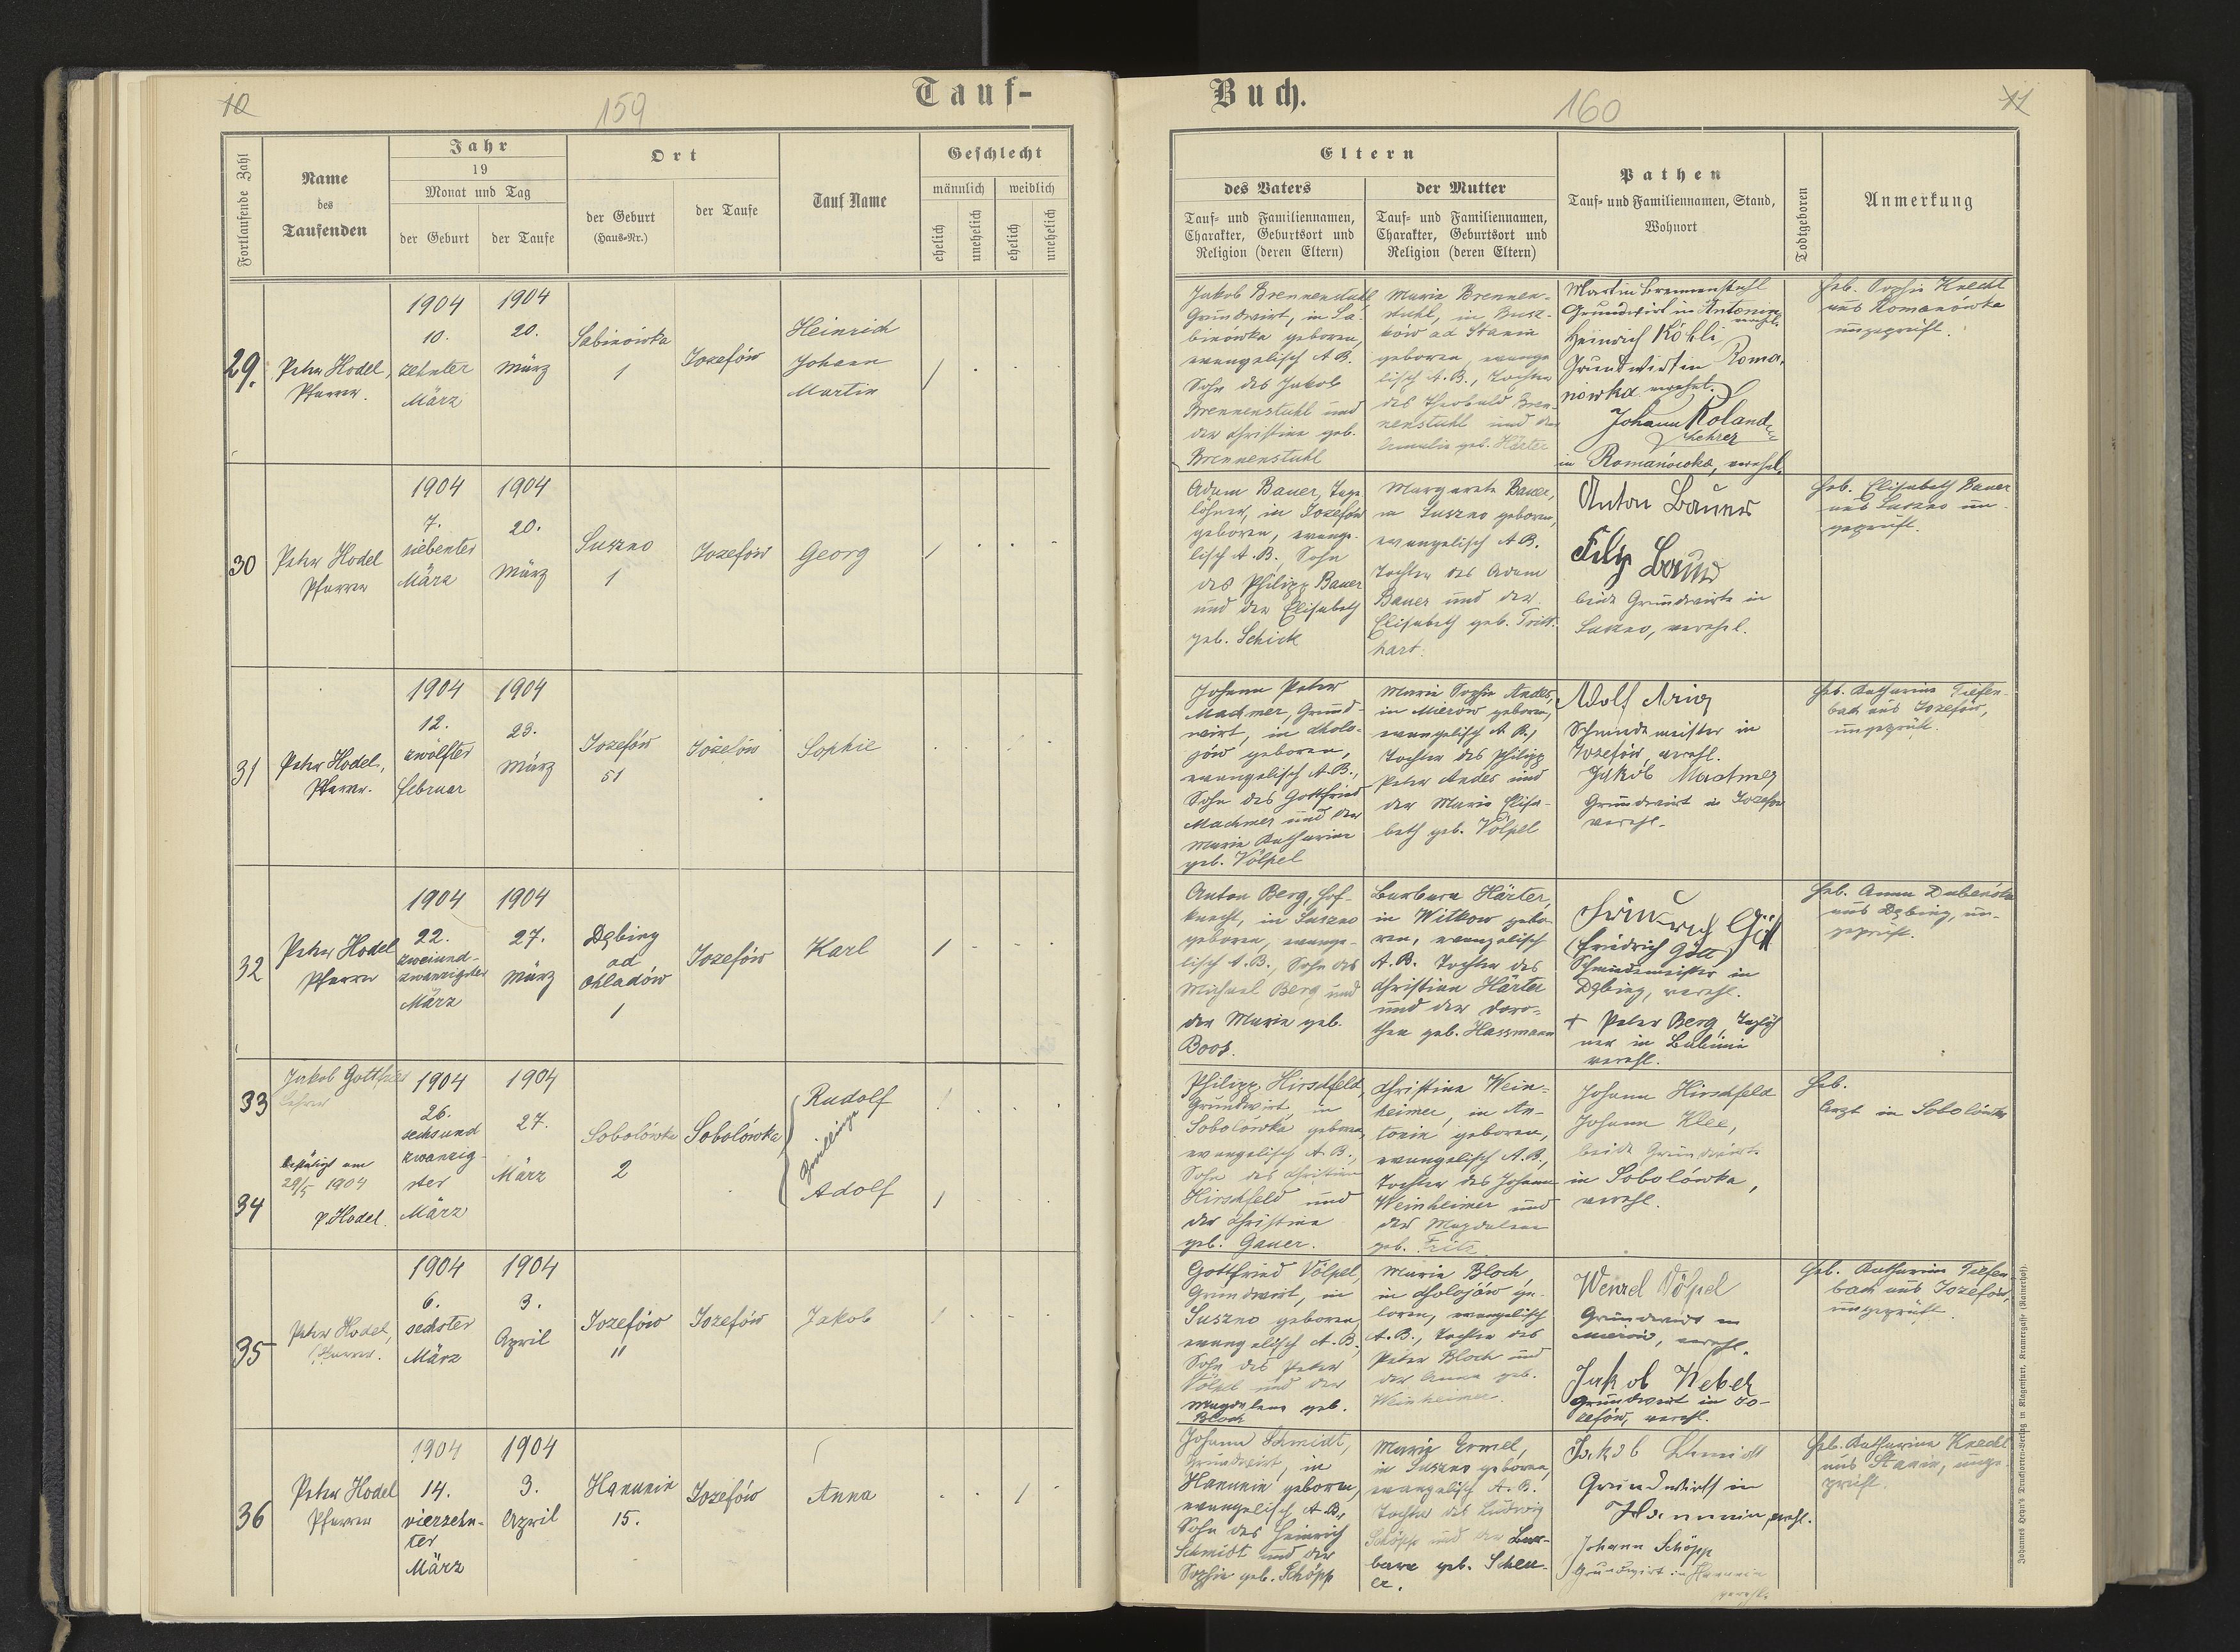 10
159
Tauf-
Fortlaufende Zahl
Name
des
Taufenden
Jahr
19
Monat und Tag
der Geburt
der Taufe
Ort
der Geburt
(Haus-Nr.)
der Taufe
Tauf Name
Geschlecht
männlich
weiblich
ehelich
unehelich
ehelich
unehelich
29.
Peter Hodel,
Pfarrer.
1904
10.
zehnter
März
1904
20.
März
Sabinówka
1
Josefów
Heinrich
Johann
Martin
1
30
Peter Hodel
Pfarrer
1904
7.
siebenter
März
1904
20.
März
Suszno
1
Josefów
Georg
1
31
Peter Hodel,
Pfarrer.
1904
12.
zwölfter
Februar
1904
23.
März
Josefów
51
Josefów
Sophie
32
Peter Hodel
Pfarrer
1904
22.
zweiund-
zwanzigster
März
1904
27.
März
Dąbiny
ad
Ohladów
1
Josefów
Karl
1
33
34
Jakob Gottfried
Lehrer
bestätigt am
29/5 1904
P. Hodel.
1904
26.
sechsund
zwanzig-
ster
März
1904
27.
März
Sobolówka
2
Sobolówka
Rudolf
Zwillinge
Adolf
1
1
35
Peter Hodel,
Pfarrer.
1904
6.
sechster
März
1904
3.
April
Josefów
11
Josefów
Jakob
1
36
Peter Hodel
Pfarrer
1904
14.
vierzehn-
ter
März
1904
3.
April
Hanunin
15.
Josefów
Anna
1
Buch.
160
11
Eltern
des Vaters
Tauf- und Familiennamen,
Charakter, Geburtsort und
Religion (deren Eltern)
der Mutter
Tauf- und Familiennamen,
Charakter, Geburtsort und
Religion (deren Eltern)
Pathen
Tauf- und Familiennamen, Stand,
Wohnort
Todtgeboren
Anmerkung
Jakob Brennenstuhl
Grundwirt, in Sa-
binówka geboren,
evangelisch A.B.
Sohn des Jakob
Brennenstuhl und
der Christine geb.
Brennenstuhl
Marie Brennen-
stuhl, in Busz-
ków ad Stanin
geboren, evange
lisch A.B., Tochter
des Theobald Bren-
nenstuhl und der
geb. Härter
Martin Brennenstuhl
Grundwirt in Antonin
verehl.
Heinrich Köhli
Grundwirt in Roma-
nowka verehel.
Johann Roland
Lehrer
in Romanówka, verehel.
Heb. Sophie Knecht
aus Romanówka
ungeprüft.
Adam Bauer, Tage
löhner, in Josefów
geboren, evange-
lisch A.B., Sohn
des Philipp Bauer
und der Elisabeth
geb. Schick
Margarete Bauer,
in Suszno geboren,
evangelisch A.B.
Tochter des Adam
Bauer und der
Elisabeth geb. Tritt-
hart.
Anton Bauer
beide Grundwirte in
Suszno, verehel.
Heb. Elisabeth Bauer
aus Suszno un-
geprüft.
Johann Peter
Machmer, Grund-
wirt, in Cholo-
jów geboren,
evangelisch A.B.,
Sohn des Gottfried
Machmer und der
Marie Katharine
geb. Völpel
Marie Sophie Andes,
in Mierów geboren,
evangelisch A.B.,
Tochter des Philipp
Peter Andes und
der Marie Elisa-
beth geb. Völpel
Adolf
Schmiedemeister in
Josefów, verehl.
Jakob Machmer
Grundwirt in Josefów
verehl.
Heb. Katharine Tiefen-
bach aus Josefów,
ungeprüft.
Anton Berg, Hof-
knecht, in Suszno
geboren, evange-
lisch A.B., Sohn des
Michael Berg und
der Marie geb.
Boos.
Barbara Härter,
in Witkow gebo-
ren, evangelisch
A.B. Tochter des
Christian Härter
und der Doro-
thea geb. Hassmann
(Friedrich Gött)
Schmiedemeister in
Dąbiny, verehl.
+ Peter Berg, Taglöh
ner in
verehl.
Heb. Anna
aus Dąbiny, un-
geprüft.
Philipp Hirschfeld,
Grundwirt, in
Sobolówka geboren,
evangelisch A.B.,
Sohn des Christian
Hirschfeld und
der Christine
geb. Gauer.
Christine Wein-
heimer, in An-
tonin geboren,
evangelisch A.B.,
Tochter des Johann
Weinheimer und
der Magdalene
geb. Fritz.
Johann Hirschfeld
Johann Klee,
beide Grundwirte
in Sobolówka,
verehl.
Heb.
Arzt in Sobolówka
Gottfried Völpel,
Grundwirt, in
Suszno geboren,
evangelisch A.B.,
Sohn des Peter
Völpel und der
Magdalene geb.
Bloch
Marie Bloch,
in Cholojów ge-
boren, evangelisch
A.B., Tochter des
Peter Bloch und
der Anna geb.
Weinheimer.
Wenzel Völpel
Grundwirt in
Mierów, verehl.
Jakob Weber
Grundwirt in Jo-
sefów, verehl.
Heb. Katharine Tiefen-
bach aus Josefów,
ungeprüft.
Johann Schmidt,
Grundwirt, in
Hanunin geboren,
evangelisch A.B.,
Sohn des Heinrich
Schmidt und der
Sophie geb. Schöpp
Marie Ermel,
in Suszno geboren,
evangelisch A.B.
Tochter des Ludwig
Schöpp und der Bar-
bara geb. Scheu-
er.
Jakob Schmidt
Grundwirth in
Hanunin, verehl.
Johann Schöpp
Grundwirt in Hanunin
verehl.
Heb. Katharine Knecht
aus Stanin, unge-
prüft.
Johannes Heyn's Drucksorten-Verlag in Klagenfurt, Kramergasse (Rainerhof).